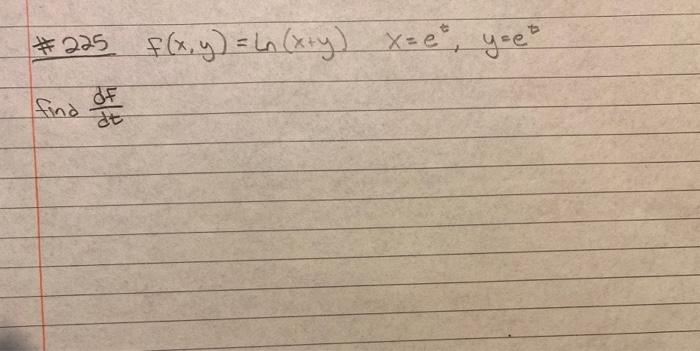 #225 f(x,y) = ln(x+y) x=e^t, y=e^t
find dF/dt